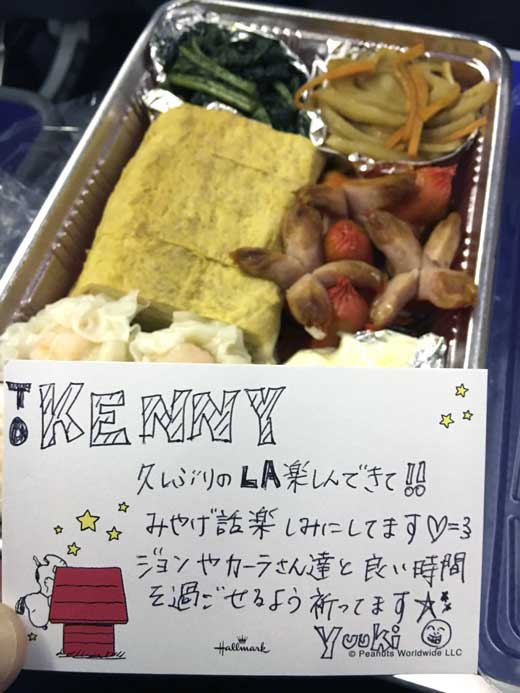 TO KENNY
久しぶりのLA楽しんできて!!
みやげ話楽しみにしてます♡=3
ジョンやカーラさん達と良い時間
を過ごせるよう祈ってます☆
Yuuki
Hallmark
© Peanuts Worldwide LLC